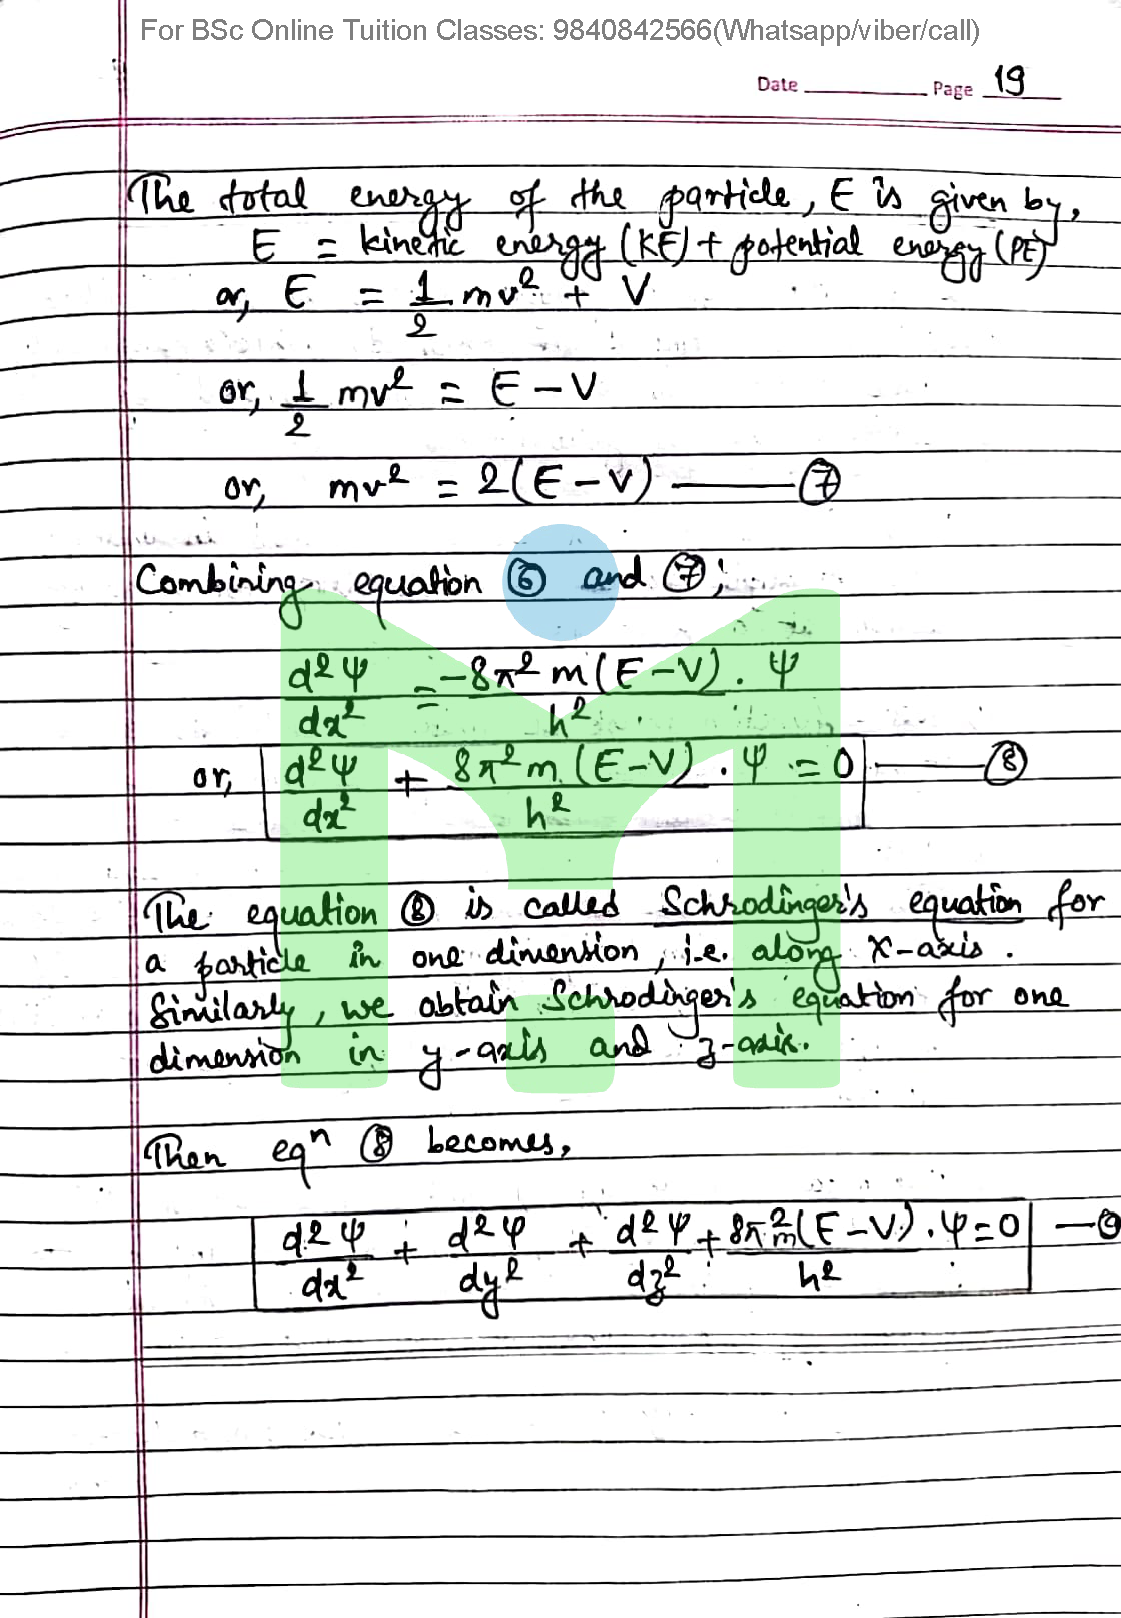 For BSc Online Tuition Classes: 9840842566(Whatsapp/viber/call)
Date Page 19
The total energy of the particle, E is given by,
E = kinetic energy (KE) + potential energy (PE)
or, E = 1/2 mv² + V
or, 1/2 mv² = E - V
or, mv² = 2(E - V) —— ⑦
Combining equation ⑥ and ⑦;
d²Ψ/dx² = -8π²m(E-V)/h² . Ψ
or, d²Ψ/dx² + 8π²m(E-V)/h² . Ψ = 0 —— ⑧
The equation ⑧ is called Schrodinger's equation for
a particle in one dimension, i.e. along X-axis.
Similarly, we obtain Schrodinger's equation for one
dimension in y-axis and z-axis.
Then eqⁿ ⑧ becomes,
d²Ψ/dx² + d²Ψ/dy² + d²Ψ/dz² + 8π²m(E-V)/h² . Ψ = 0 — ⑨